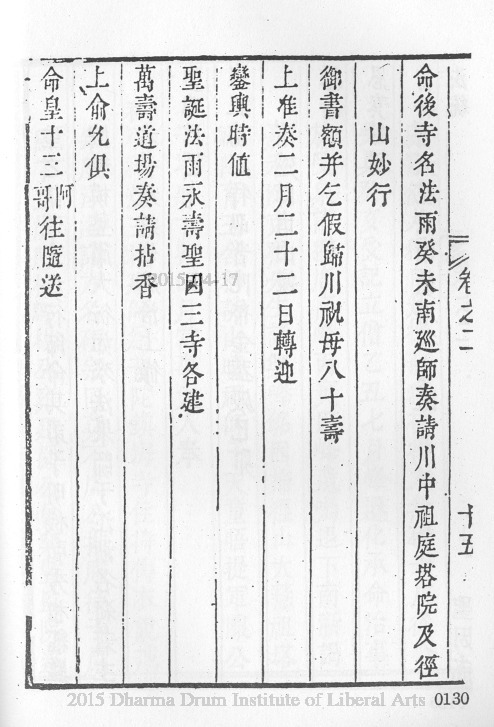 卷之二 十五
命後寺名法雨癸未南廵師奏請川中祖庭塔院及徑
山妙行
御書額并乞假歸川祝母八十壽
上准奏二月二十二日轉迎
鑾輿時值
聖誕法雨永壽聖因三寺各建
萬壽道場奏請拈香
上俞允俱
命皇十三阿哥往隨送
2015-04-17
2015 Dharma Drum Institute of Liberal Arts 0130